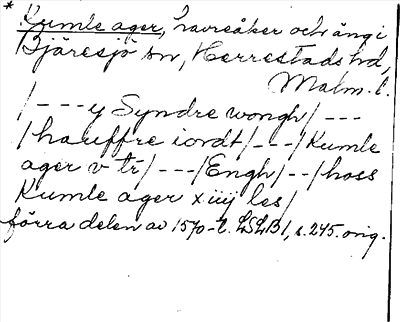 * Kumle ager, havreåker och äng i
Bjäresjö sn, Herrestads hd,
Malm. l.
/---y Syndre wongh/---
/hauffre iordt/---/Kumle
ager v tr/---/Engh/--/hoss
Kumle ager x iiij les/
förra delen av 1570-t. LSLB1, s. 245. orig.